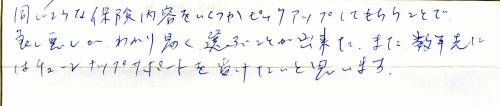 同じような保険内容をいくつかピックアップしてもらうことで
良し悪しがわかり易く選ぶことが出来た。また数年先に
はチューンナップサポートを受けたいと思います。